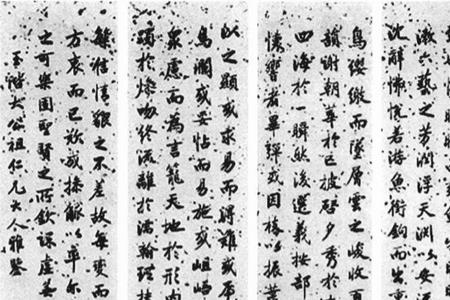 漱六藝之芳潤浮天淵以安
沈辭怫悅若游魚銜鉤而出重
鳥纓繳而墜層雲之峻收百
韻謝朝華於已披啓夕秀於
四海於一瞬然後選義按部
懷響者畢彈或因枝以振葉
以之顯或求易而得難或虎
鳥瀾或妥帖而易施或岨峿
眾慮而為言籠天地於形內
躅於燥吻終流離於濡翰理扶
情貌之不差故每變而
方哀而已歎或操觚以率尔
之可樂固聖賢之所欽課虛無
玉階大公祖仁兄大人雅鑒